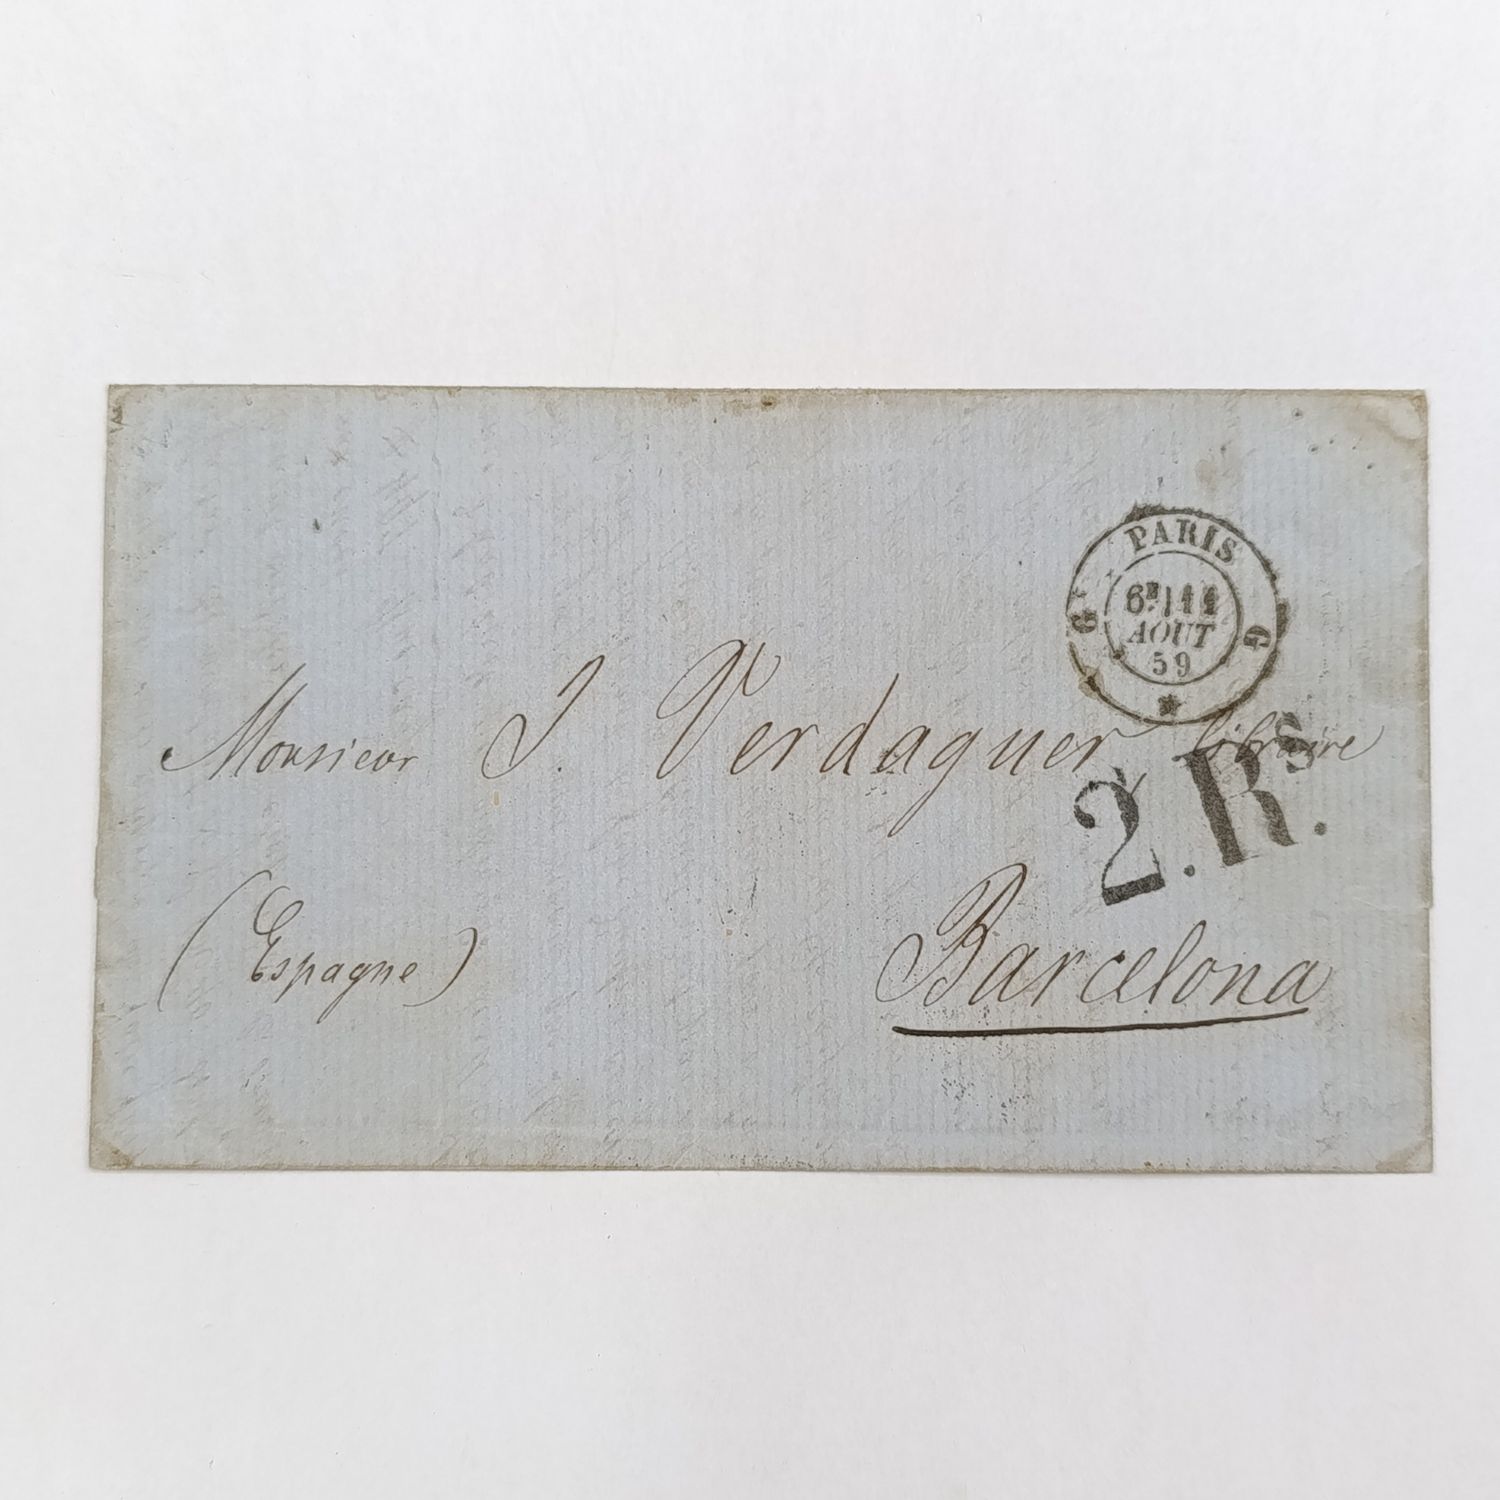 PARIS
6E 11
AOUT
59
G G
Monsieur J. Verdaguer, libraire
2.Rs.
(Espagne) Barcelona